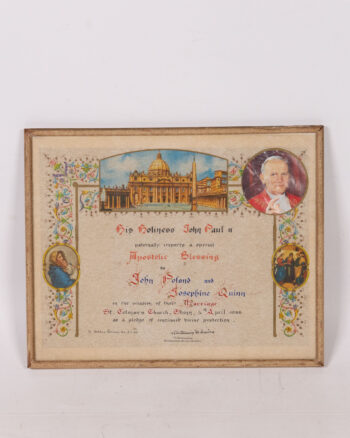 His Holiness John Paul II
paternally imparts a special
Apostolic Blessing
to
John Poland and
Josephine Quinn
on the occasion of their Marriage
St. Colman's Church, 5th April
as a pledge of continued divine protection